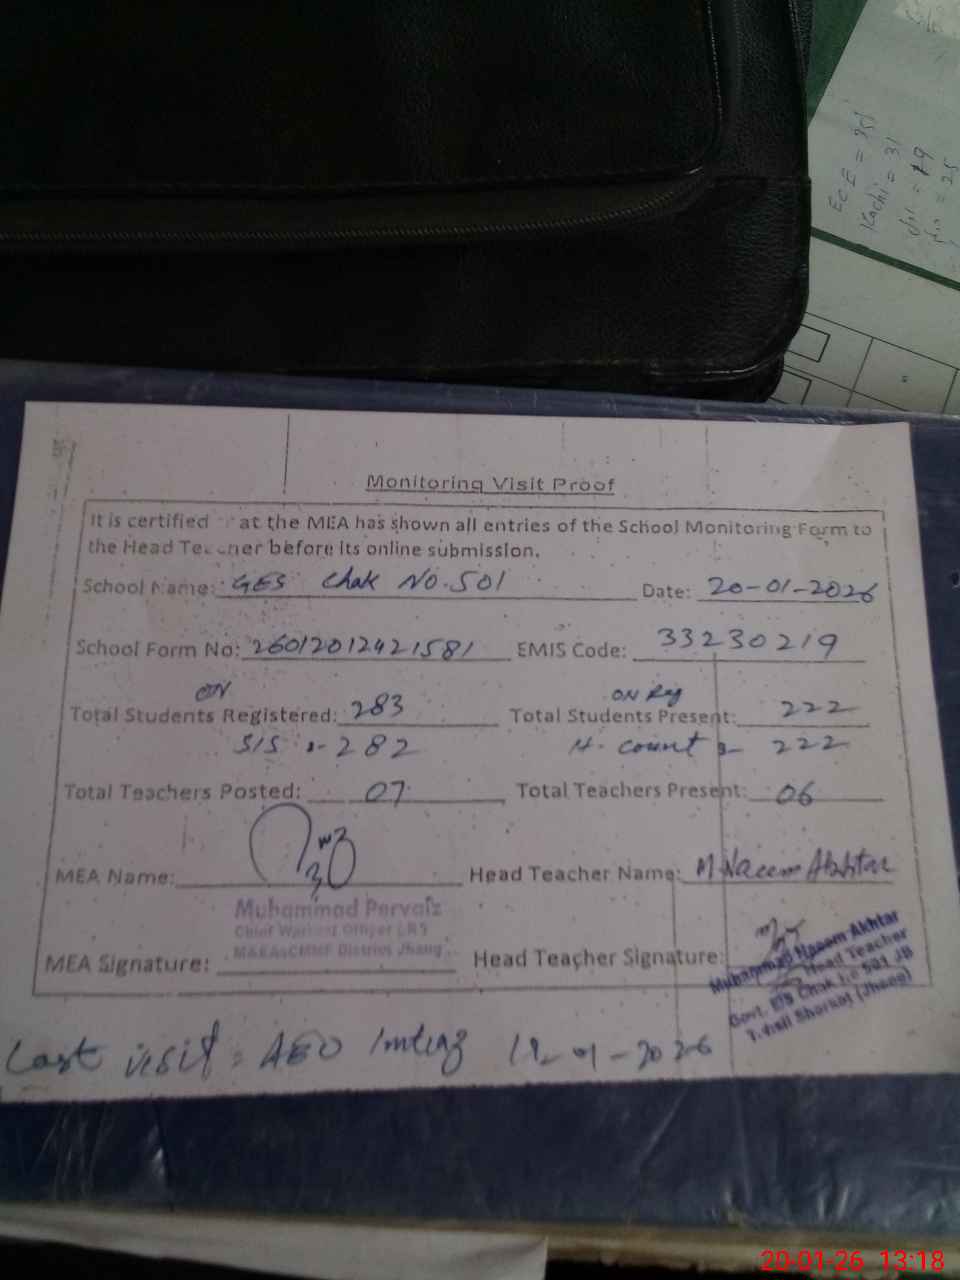 EcE = 351
Kachi = 31
Monitoring Visit Proof
It is certified at the MEA has shown all entries of the School Monitoring Form to
the Head Teacher before its online submission.
School Name: GES Chak No. 501 Date: 20-01-2026
School Form No: 26012012421581 EMIS Code: 33230219
ON ON Reg
Total Students Registered: 283 Total Students Present: 222
SIS :- 282 H. count :- 222
Total Teachers Posted: 07 Total Teachers Present: 06
MEA Name: Head Teacher Name: M Naeem Akhtar
Muhammad Pervaiz
MEA Signature: District Jhang Head Teacher Signature:
Muhammad Naeem Akhtar
Head Teacher
Govt. E/S Chak No 501 JB
T.Hsil Shorkot (Jhang)
Last visit : AEO Imtiaz -01-2026
20-01-26 13:18